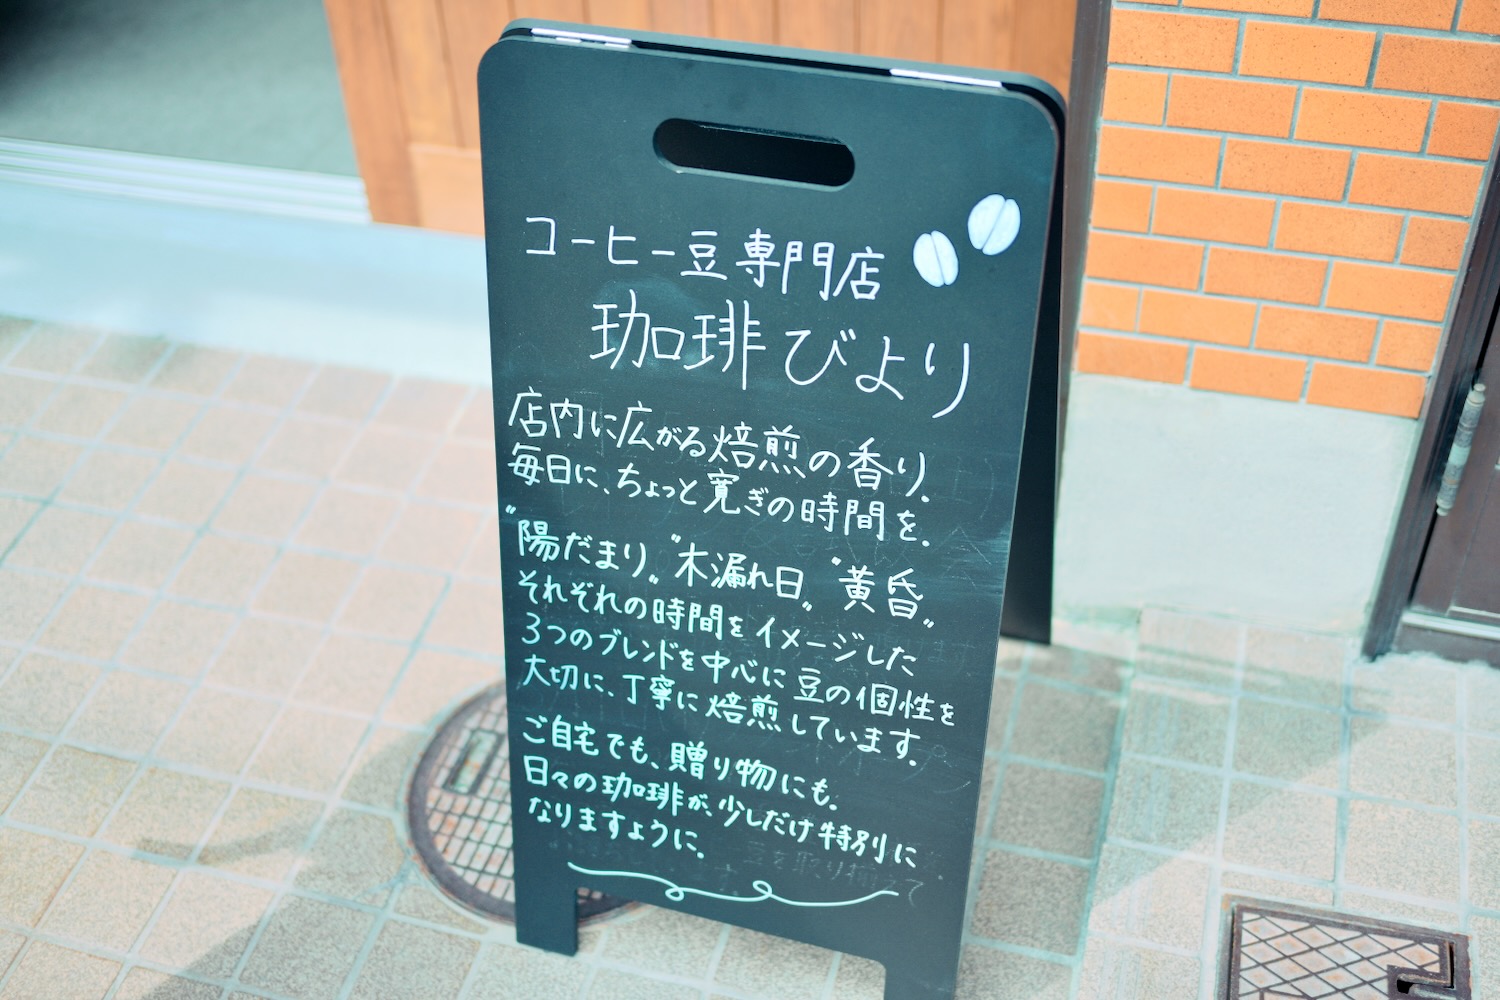 コーヒー豆専門店
珈琲びより
店内に広がる焙煎の香り。
毎日に、ちょっと寛ぎの時間を。
"陽だまり" "木漏れ日" "黄昏"
それぞれの時間をイメージした
3つのブレンドを中心に豆の個性を
大切に、丁寧に焙煎しています。
ご自宅でも、贈り物にも。
日々の珈琲が、少しだけ特別に
なりますように。